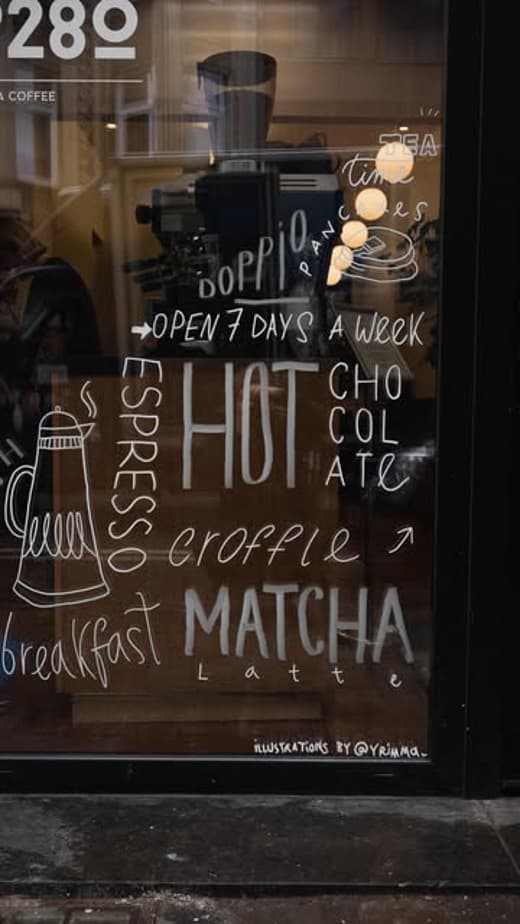 280
A COFFEE
TEA
time
PANCAKES
DOPPIO
OPEN 7 DAYS A WEEK
ESPRESSO
HOT
CHO
COL
ATE
croffle
breakfast
MATCHA
Latte
ILLUSTRATIONS BY @YRIMMA_